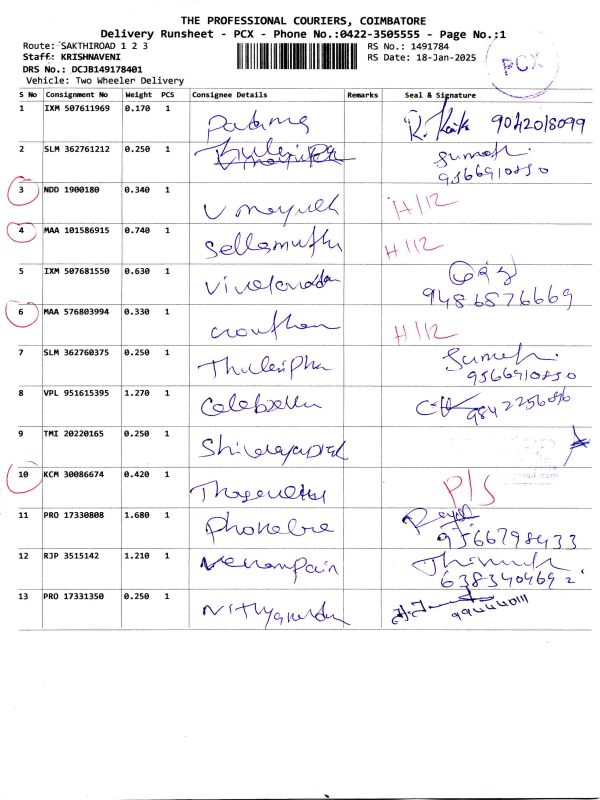 THE PROFESSIONAL COURIERS, COIMBATORE
Delivery Runsheet - PCX - Phone No.:0422-3505555 - Page No.:1
Route: SAKTHIROAD 1 2 3 RS No.: 1491784
Staff: KRISHNAVENI RS Date: 18-Jan-2025
DRS No.: DCJB149178401
Vehicle: Two Wheeler Delivery
PCX
S No Consignment No Weight PCS Consignee Details Remarks Seal & Signature
1 IXM 507611969 0.170 1 9042018099
2 SLM 362761212 0.250 1 Sumathi
9566910850
3 NDD 1900180 0.340 1 H/12
4 MAA 101586915 0.740 1 Sellamuthu H/12
5 IXM 507681550 0.630 1
9486576669
6 MAA 576803994 0.330 1 H/12
7 SLM 362760375 0.250 1 Sumathi
9566910850
8 VPL 951615395 1.270 1
9 TMI 20220165 0.250 1
10 KCM 30086674 0.420 1 P/S
11 PRO 17330808 1.680 1
9566798433
12 RJP 3515142 1.210 1
6383404692
13 PRO 17331350 0.250 1